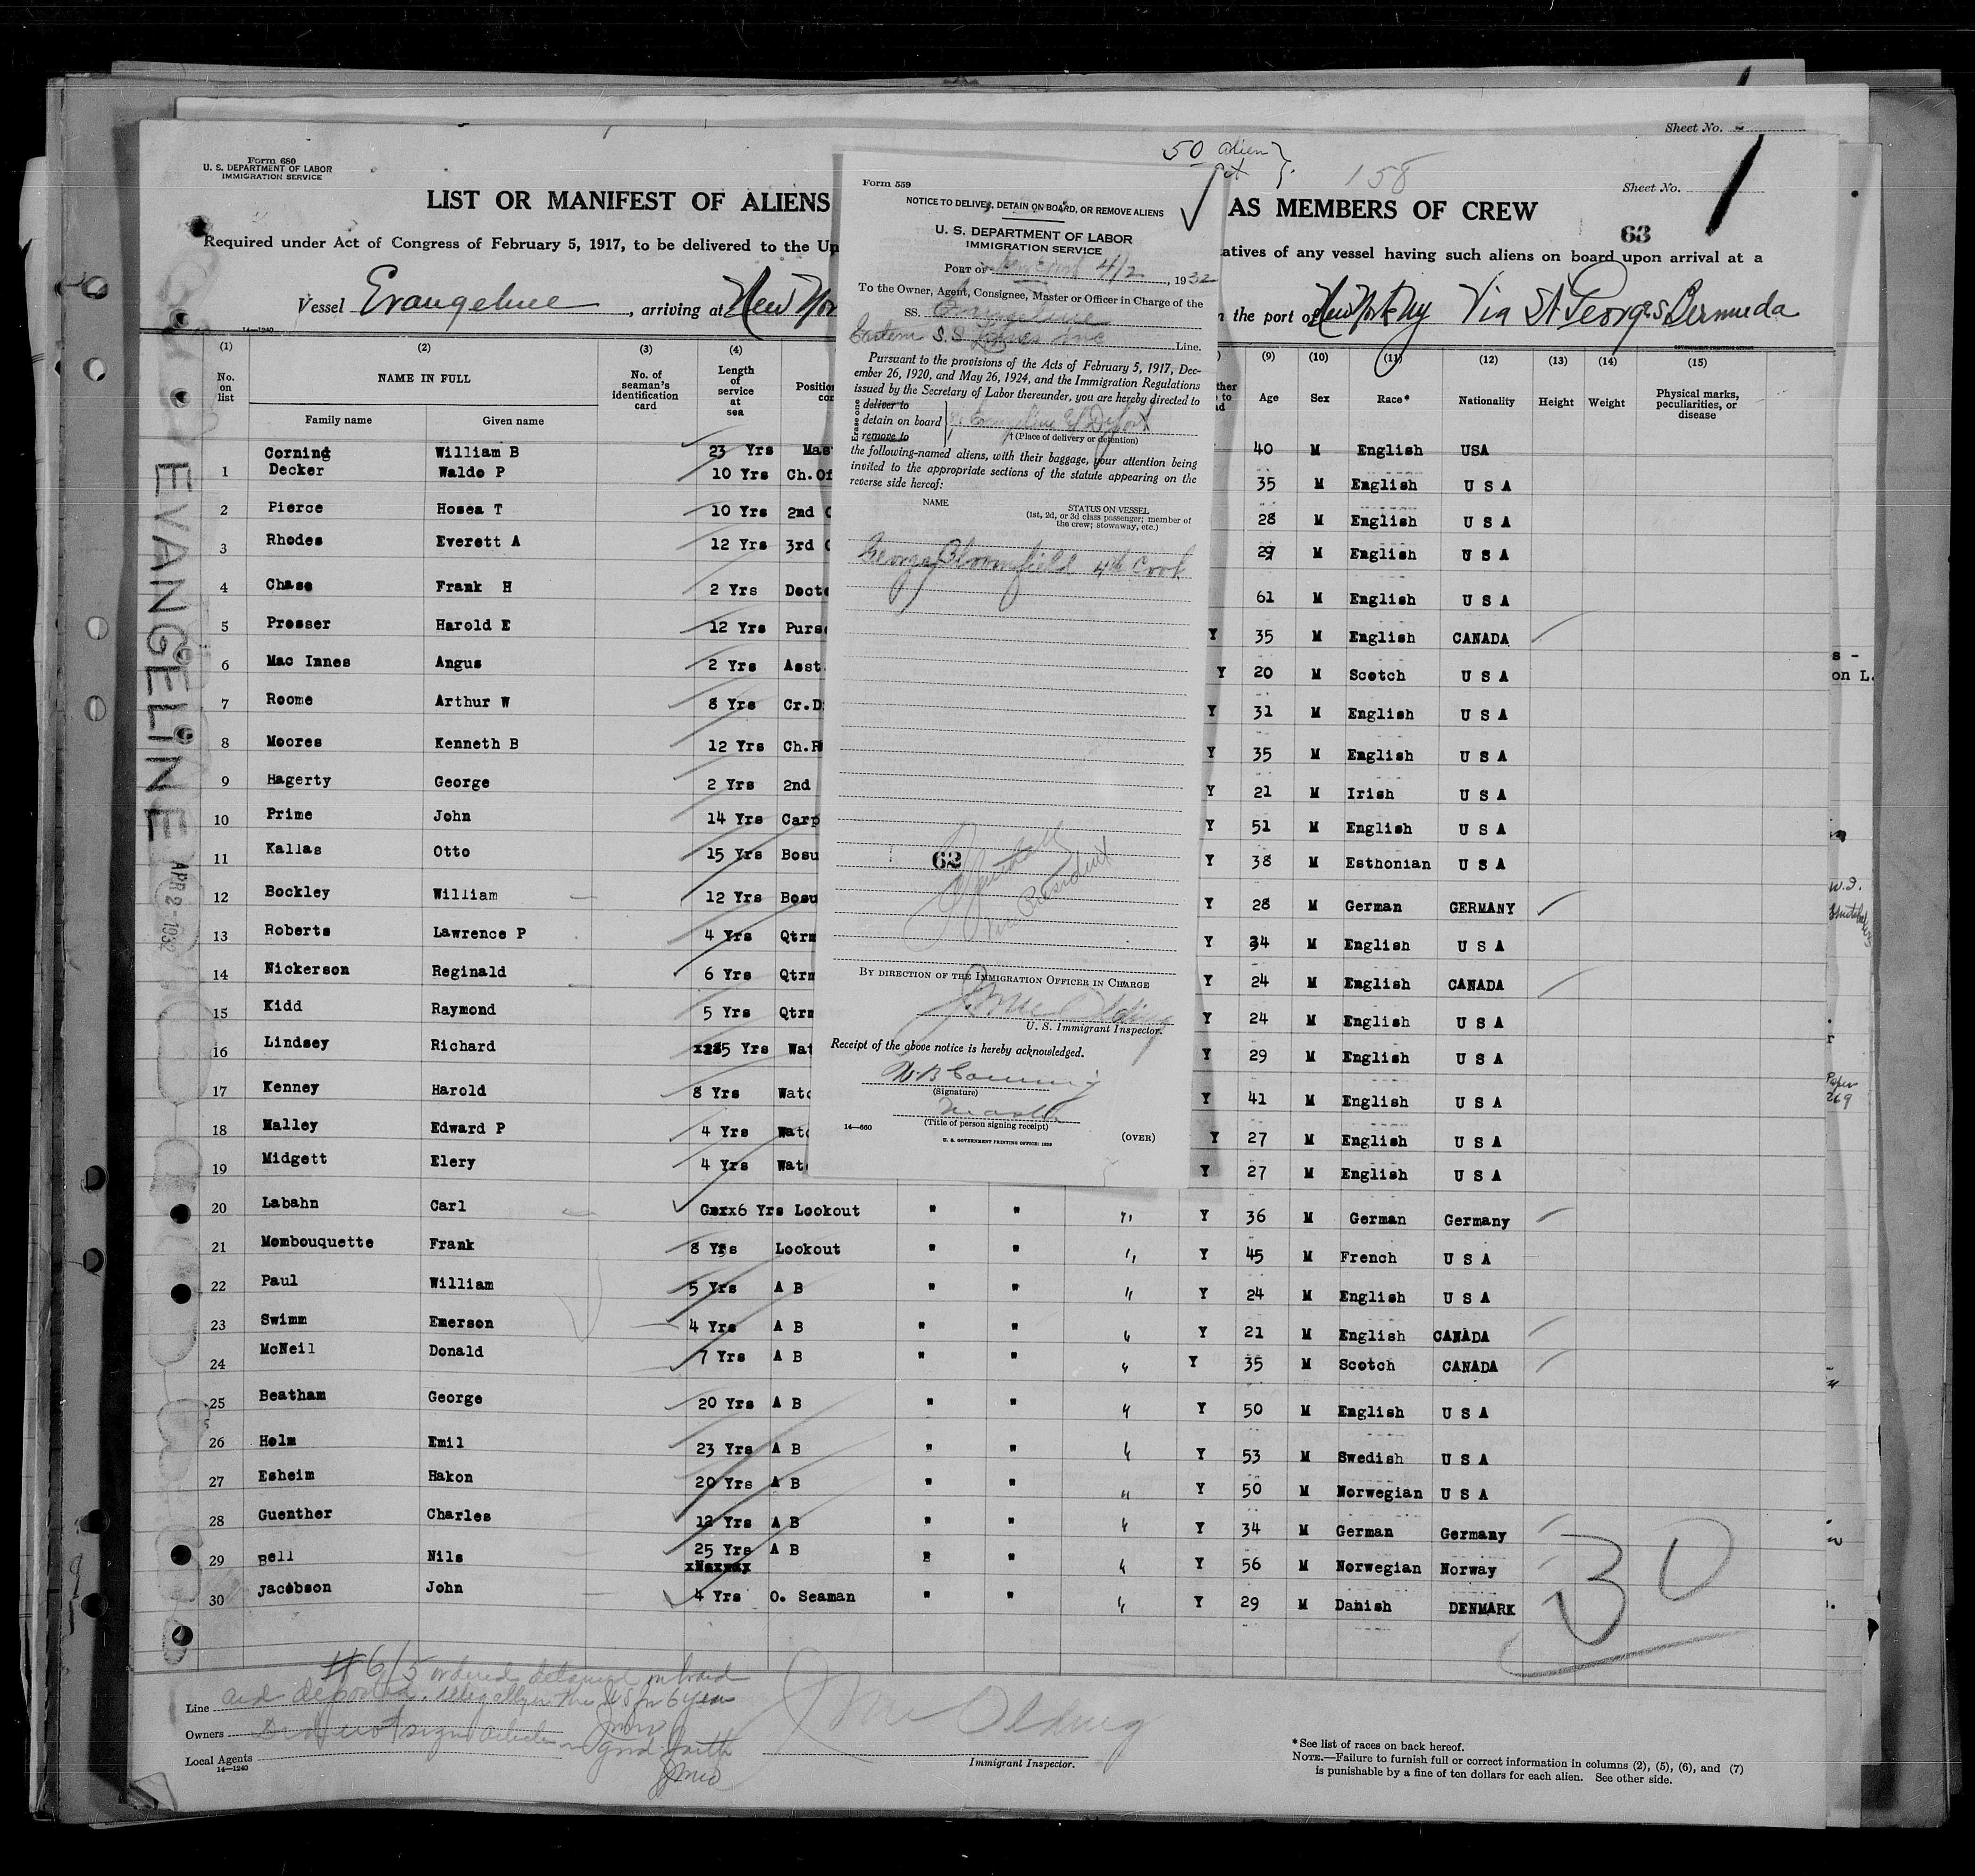 Sheet No.
Form 680
U. S. DEPARTMENT OF LABOR
IMMIGRATION SERVICE
50 alien
158
Sheet No. 1
LIST OR MANIFEST OF ALIENS AS MEMBERS OF CREW
63
Required under Act of Congress of February 5, 1917, to be delivered to the atives of any vessel having such aliens on board upon arrival at a
Vessel Evangeline, arriving at New Yor the port of New York Ny Via St Georges Bermuda
14—1240
(1) (2) (3) (4) (9) (10) (11) (12) (13) (14) (15)
No. on list NAME IN FULL Family name Given name No. of seaman's identification card Length of service at sea Age Sex Race* Nationality Height Weight Physical marks, peculiarities, or disease
Corning William B 23 Yrs Mas 40 M English USA
1 Decker Waldo P 10 Yrs Ch.Of 35 M English U S A
2 Pierce Hosea T 10 Yrs 2nd 28 M English U S A
3 Rhodes Everett A 12 Yrs 3rd 29 M English U S A
4 Chase Frank H 2 Yrs Docto 61 M English U S A
5 Prosser Harold E 12 Yrs Purs Y 35 M English CANADA
6 Mac Innes Angus 2 Yrs Asst. Y 20 M Scotch U S A
7 Roome Arthur W 8 Yrs Cr.D Y 31 M English U S A
8 Moores Kenneth B 12 Yrs Ch.R Y 35 M English U S A
9 Hagerty George 2 Yrs 2nd Y 21 M Irish U S A
10 Prime John 14 Yrs Carp Y 51 M English U S A
11 Kallas Otto 15 Yrs Bosu Y 38 M Esthonian U S A
12 Bockley William 12 Yrs Bosu Y 28 M German GERMANY
13 Roberts Lawrence P 4 Yrs Qtrm Y 34 M English U S A
14 Nickerson Reginald 6 Yrs Qtrm Y 24 M English CANADA
15 Kidd Raymond 5 Yrs Qtrm Y 24 M English U S A
16 Lindsey Richard 5 Yrs Wat Y 29 M English U S A
17 Kenney Harold 8 Yrs Watc Y 41 M English U S A
18 Malley Edward P 4 Yrs Watc Y 27 M English U S A
19 Midgett Elery 4 Yrs Watc Y 27 M English U S A
20 Labahn Carl 6 Yrs Lookout " " " Y 36 M German Germany
21 Mombouquette Frank 8 Yrs Lookout " " " Y 45 M French U S A
22 Paul William 5 Yrs A B " " " Y 24 M English U S A
23 Swimm Emerson 4 Yrs A B " " " Y 21 M English CANADA
24 McNeil Donald 7 Yrs A B " " " Y 35 M Scotch CANADA
25 Beatham George 20 Yrs A B " " " Y 50 M English U S A
26 Holm Emil 23 Yrs A B " " " Y 53 M Swedish U S A
27 Esheim Hakon 20 Yrs A B " " " Y 50 M Norwegian U S A
28 Guenther Charles 12 Yrs A B " " " Y 34 M German Germany
29 Bell Nils 25 Yrs A B " " " Y 56 M Norwegian Norway
30 Jacobson John 4 Yrs O. Seaman " " " Y 29 M Danish DENMARK
30
EVANGELINE
APR 2-1932
Form 559
NOTICE TO DELIVER, DETAIN ON BOARD, OR REMOVE ALIENS
U. S. DEPARTMENT OF LABOR
IMMIGRATION SERVICE
PORT OF New York 4/2, 1932
To the Owner, Agent, Consignee, Master or Officer in Charge of the
SS. Evangeline
Eastern S.S. Lines Inc Line.
Pursuant to the provisions of the Acts of February 5, 1917, Dec-
ember 26, 1920, and May 26, 1924, and the Immigration Regulations
issued by the Secretary of Labor thereunder, you are hereby directed to
Erase one
deliver to
detain on board
remove to
(Place of delivery or detention)
the following-named aliens, with their baggage, your attention being
invited to the appropriate sections of the statute appearing on the
reverse side hereof:
NAME STATUS ON VESSEL
(1st, 2d, or 3d class passenger; member of
the crew; stowaway, etc.)
George Bloomfield 4th Cook
62
Vice President
BY DIRECTION OF THE IMMIGRATION OFFICER IN CHARGE
U. S. Immigrant Inspector.
Receipt of the above notice is hereby acknowledged.
W B Corning
(Signature)
Master
(Title of person signing receipt)
14—660
U. S. GOVERNMENT PRINTING OFFICE: 1929
(OVER)
#6/5 ordered detained on board
Line and deported. illegally in the US for 6 years
Owners Did not sign articles in good faith
Local Agents
14—1240
Immigrant Inspector.
*See list of races on back hereof.
NOTE.—Failure to furnish full or correct information in columns (2), (5), (6), and (7)
is punishable by a fine of ten dollars for each alien. See other side.